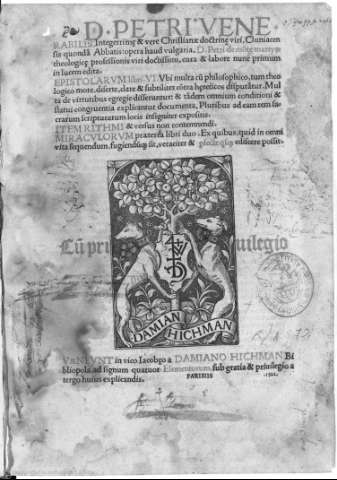 D. PETRI VENE
RABILIS Integerrimę & vere Christianæ doctrinę viri, Cluniacen
sis quondā Abbatis: opera haud vulgaria. D. Petri de
theologicę professionis viri doctissimi, cura & labore nunc primum
in lucem edita.
EPISTOLARVM libri. VI. Vbi multa cū philosophico, tum theo
logico more, diserte, clare & subtiliter cōtra hęreticos disputātur. Mul
ta de virtutibus egregie disseruntur: & tādem omnium conditioni &
statui congruentia explicantur documenta, Pluribus ad eam rem sa
crarum scripturarum locis insigniter expositis.
ITEM RITHMI & versus non contemnendi.
MIRACVLORVM præterea libri duo. Ex quibus, quid in omni
vita sequendum, fugiendūq; sit, veraciter & visitere possit.
Cū privilegio
DAMIAN HICHMAN
VÆNEVNT in vico Iacobęo a DAMIANO HICHMAN Bi
bliopola: ad signum quatuor Elementorum, sub gratia & priuilegio a
tergo huius explicandis.
PARISIIS